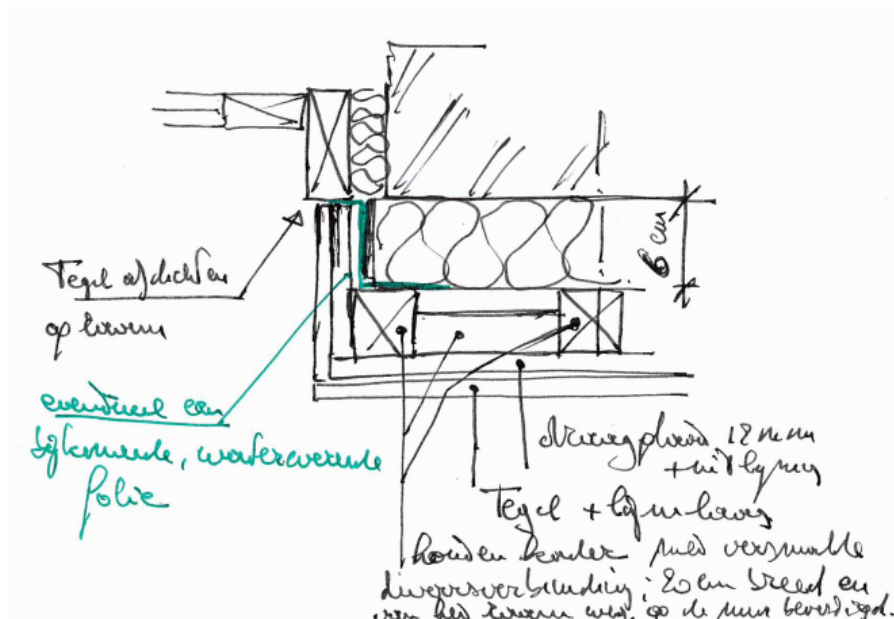 Tegel afdichten
op kozum
eventueel een
bijkomende, waterwerende
folie
6 cm
draagplaat 12 mm
+ uitlijning
Tegel + lijmlaag
houten kader met versmalde
dwarsverbinding: 20 cm breed en
op de muur bevestigd.